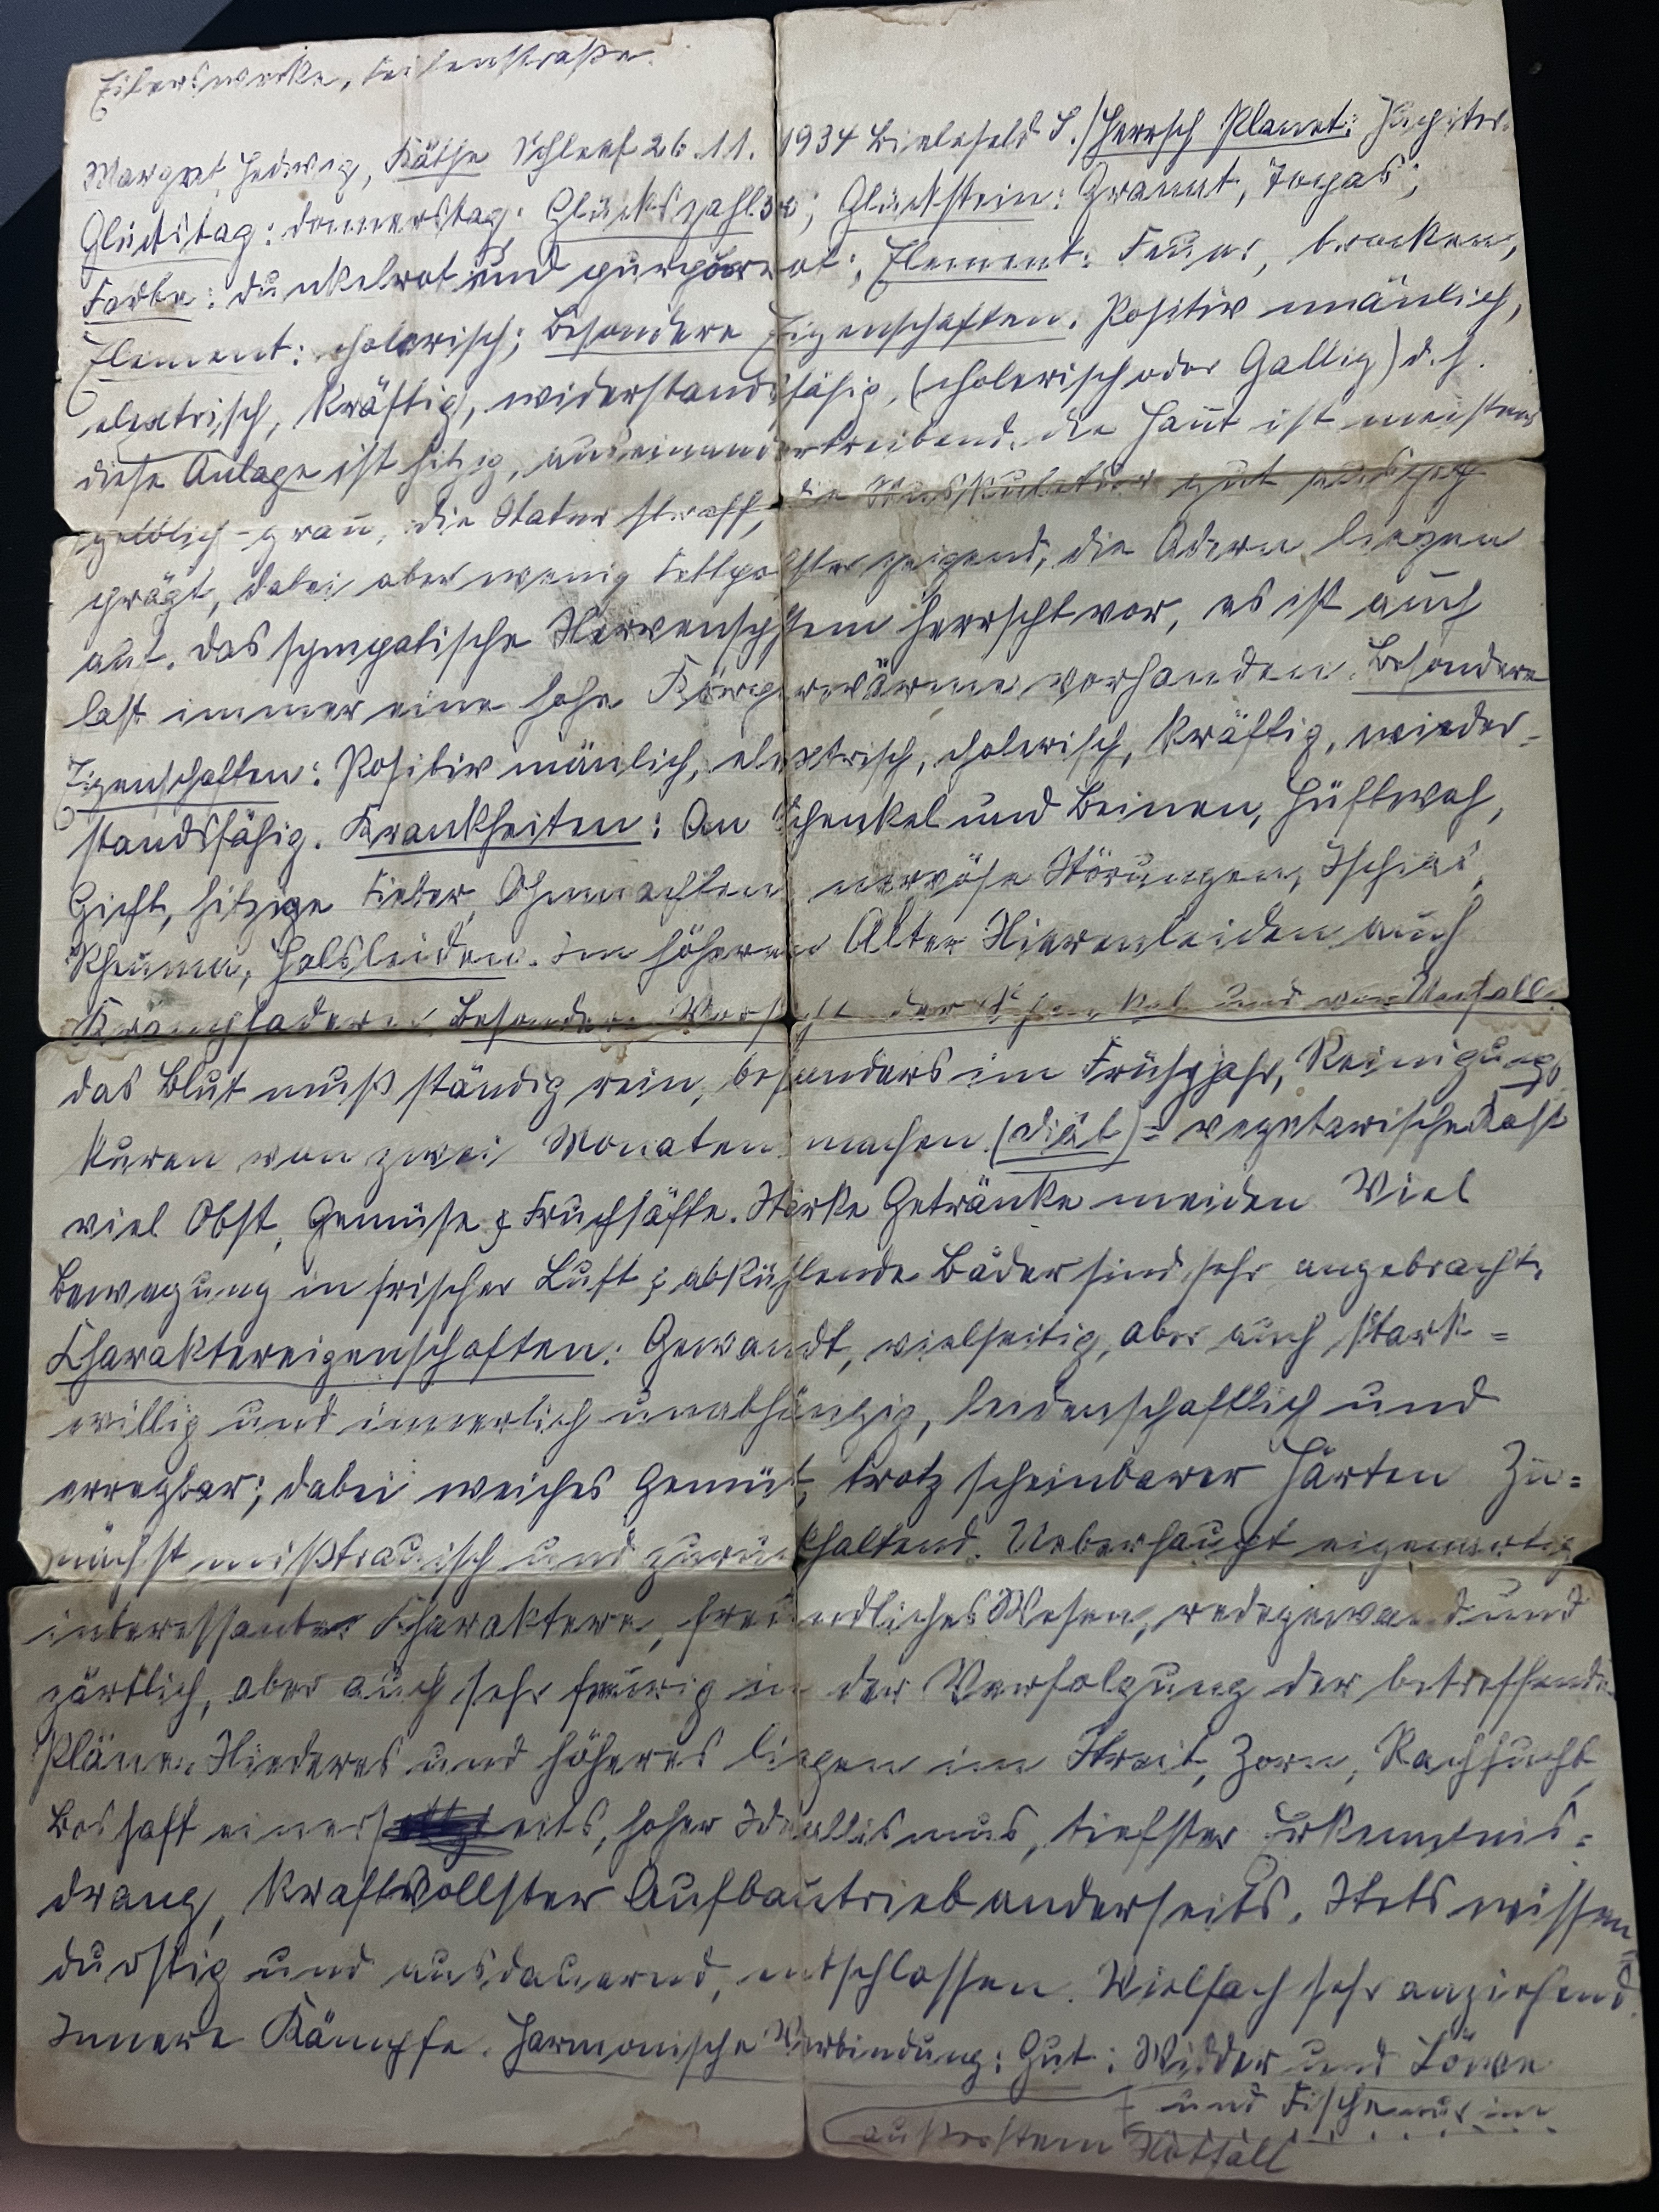 Margret, Hedwig, Käthe Schleef 26.11.1934 Bielefeld S./Herrsch Planet: Jupiter.
Glückstag: Donnerstag. Glückszahl 3; Glückstein: Granat, Topas;
Farbe: dunkelrot und purpurrot; Element: Feuer, trocken,
Element: cholerisch; Besondere Eigenschaften: Positiv mänlich,
elextrisch, kräftig, widerstandsfähig, (cholerisch oder Gallig) d.h.
diese Anlage ist hitzig, auseinandertreibend. die Haut ist meistens
gelblich-grau, die Statur straff, die Muskulatur gut ausgep
prägt, dabei aber wenig Fettpolster zeigend, die Adern liegen
auf. Das sympatische Nervensystem herrscht vor, es ist auch
fast immer eine hohe Körperwärme vorhanden. Besondere
Eigenschaften: Positiv mänlich, elextrisch, cholerisch, kräftig, wieder-
standsfähig. Krankheiten: An Schenkel und Beinen, Hüftweh,
Gicht, hitzige Fieber, Ohnmachten, nervöse Störungen, Ischias,
Rheuma, Halsleiden. Im höheren Alter Nierenleiden auch
Krampfadern. Besondere Vorsicht der Schenkel und von Unfall.
das Blut muß ständig rein, besonders im Frühjahr, Reinigungs
kuren von zwei Monaten machen. (Diät) = vegetarische Kost
viel Obst, Gemüse & Fruchsäfte. Starke Getränke meiden Viel
Bewegung in frischer Luft & abkühlende Bäder sind sehr angebracht.
Charaktereigenschaften: Gewandt, vielseitig, aber auch stark=
willig und innerlich unabhängig, leidenschaftlich und
erregbar; dabei weiches Gemüt, trotz scheinbarer Härten Zu=
nächst mißtrauisch und zurückhaltend. Ueberhaupt eigenartig
interessanter Charaktere, freundliches Wesen, redegewand und
zärtlich, aber auch sehr feurig in der Verfolgung der betreffenden
Pläne. Niederes und höheres liegen im Streit, Zorn, Rachsucht,
Boshaft einerseits, hoher Ideallismus, tiefster Erkenntnis=
drang, kraftvollster Aufbautrieb anderseits. Stets wissen=
durstig und ausdauernd, entschlossen. Vielfach sehr anziehend.
Innere Kämpfe. Harmonische Verbindung: Gut: Widder und Löwe
und Fische nur im
äußerstem Notfall